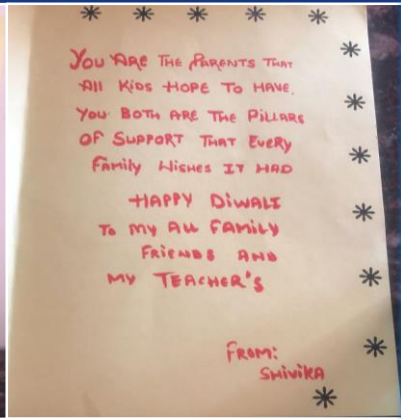 You ARE THE PARENTS THAT
All KiDS HOPE TO HAVE.
You BOTH ARE THE PiLLARS
OF SUPPORT THAT EVERY
Family WISHES IT HAD
HAPPY DiWALI
To my All FAMILY
FRIENDS AND
MY TEACHER'S
FROM:
SHIVIKA